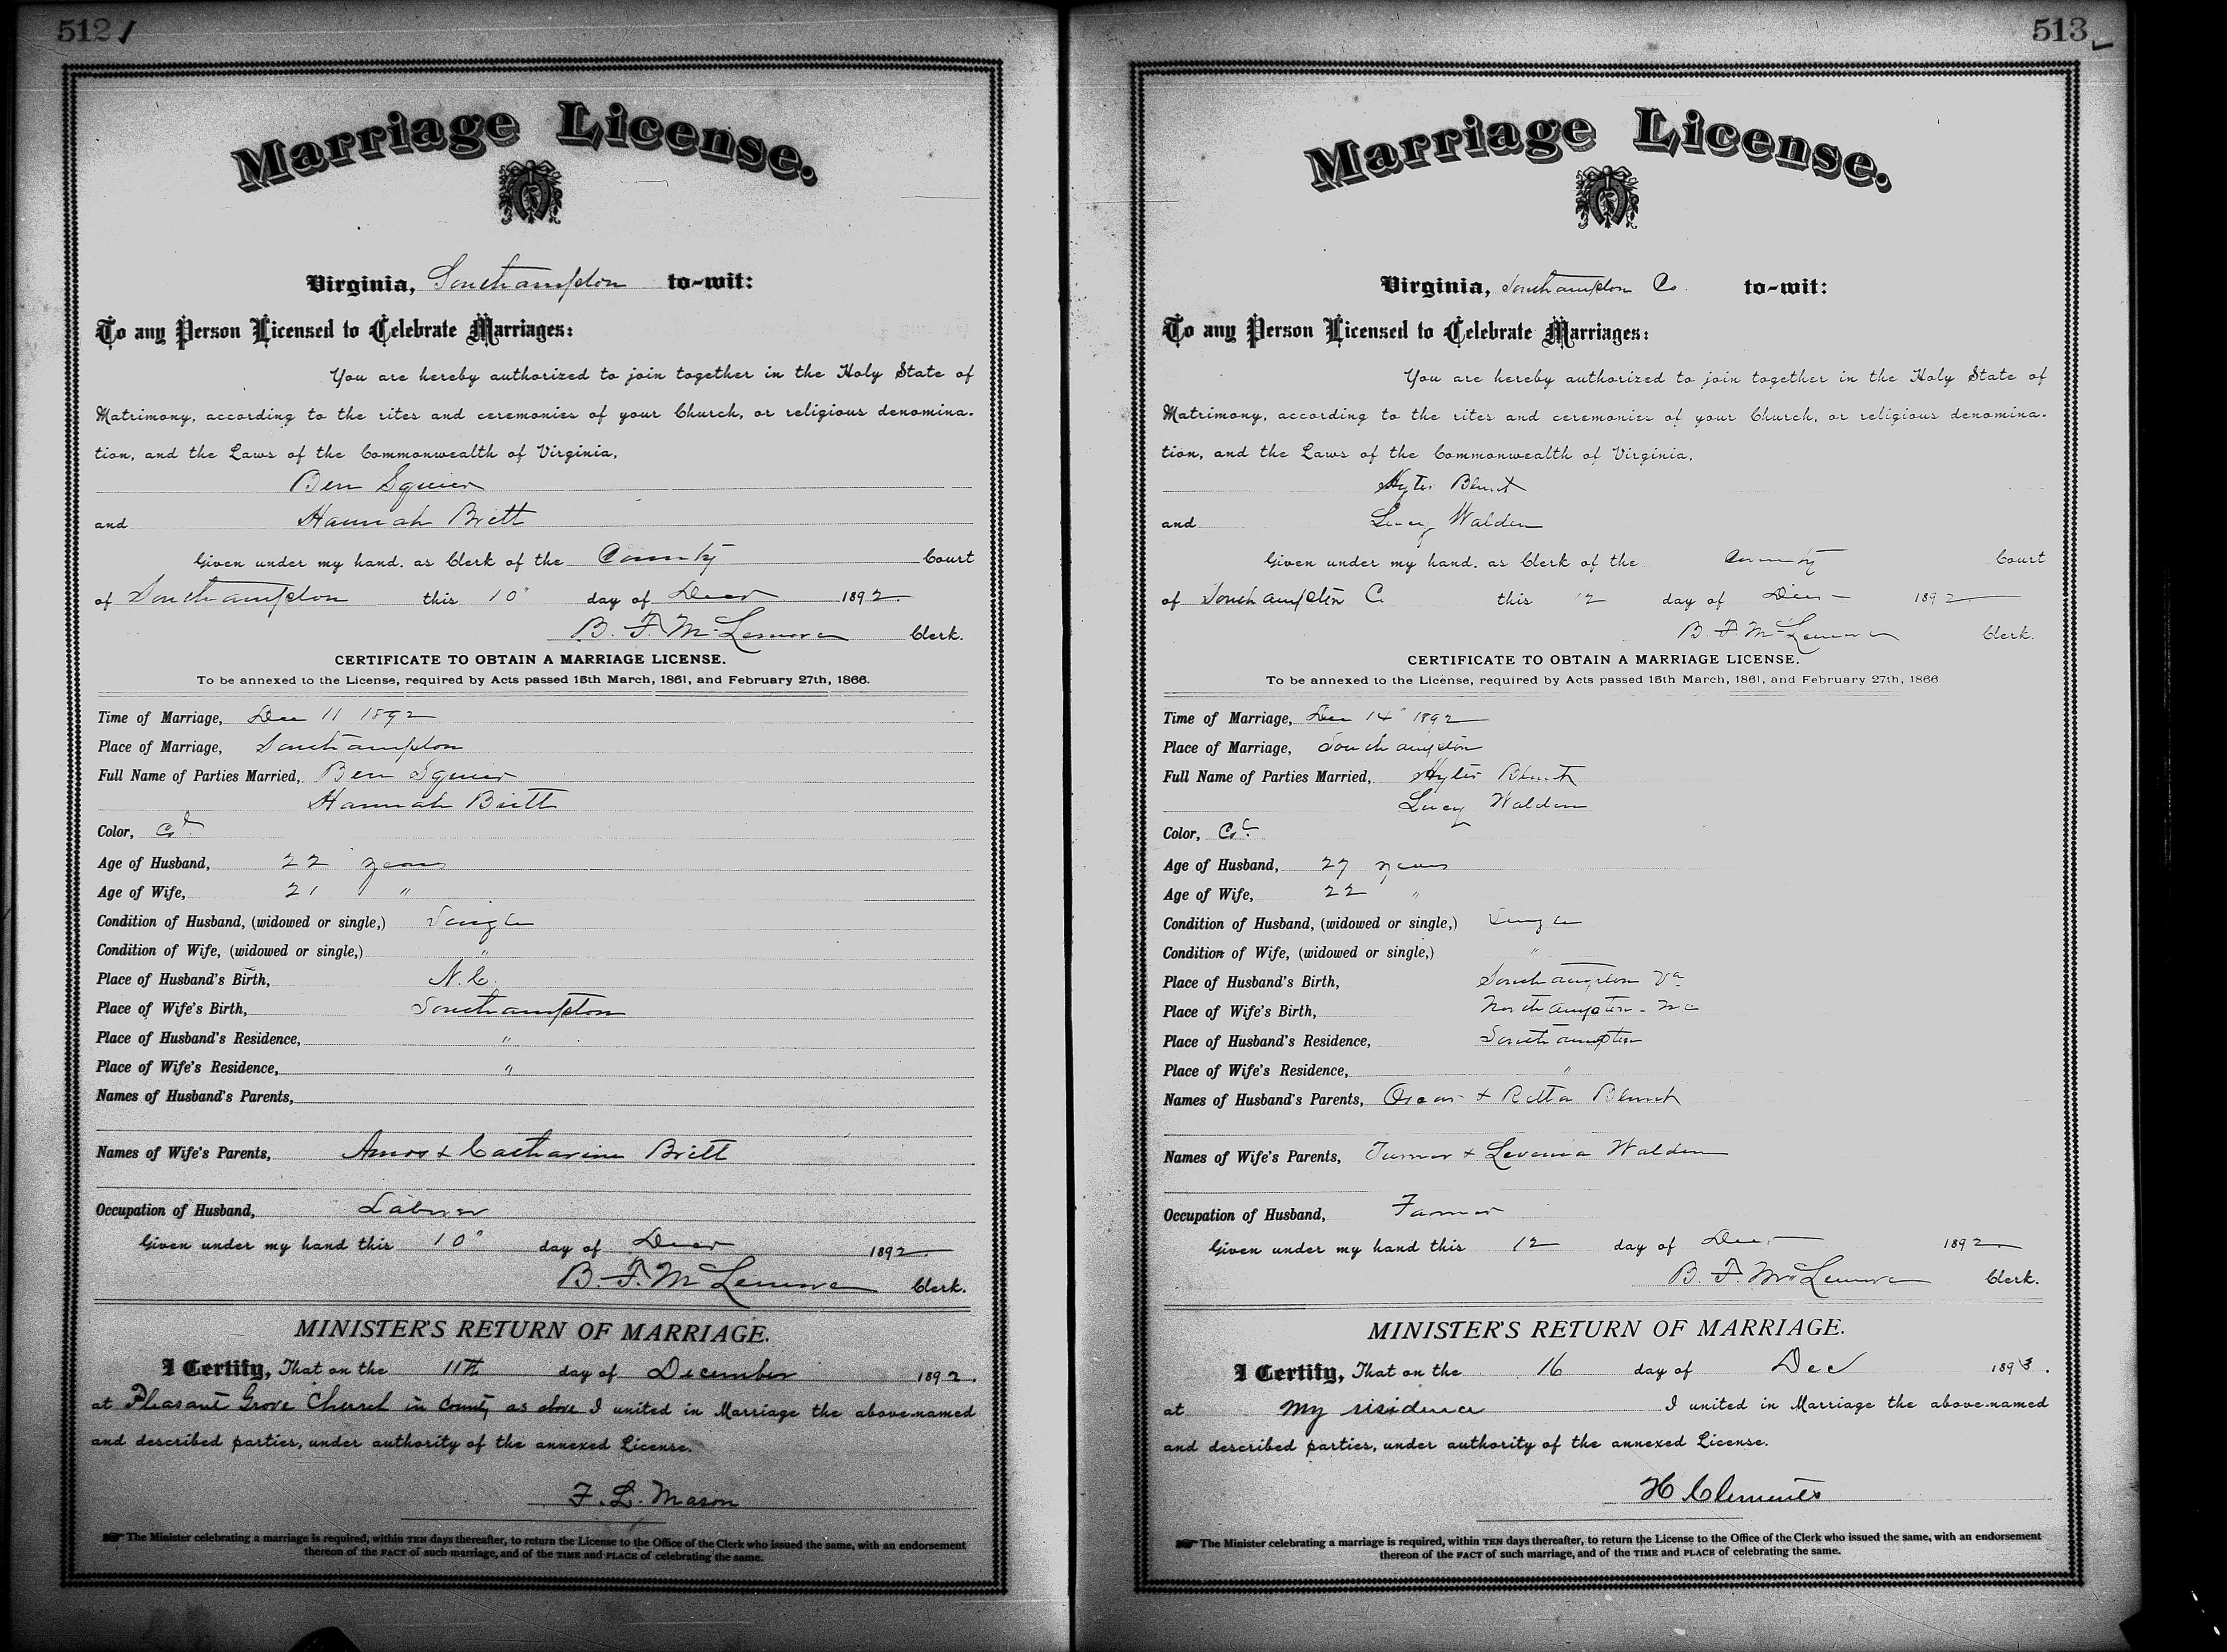 512
Marriage License.
Virginia, Southampton to-wit:
To any Person Licensed to Celebrate Marriages:
You are hereby authorized to join together in the Holy State of
Matrimony, according to the rites and ceremonies of your Church, or religious denomina-
tion, and the Laws of the Commonwealth of Virginia,
Ben Squier
and Hannah Britt
Given under my hand, as Clerk of the County Court
of Southampton this 10" day of Decr 1892.
B. F. McLemore Clerk.
CERTIFICATE TO OBTAIN A MARRIAGE LICENSE.
To be annexed to the License, required by Acts passed 15th March, 1861, and February 27th, 1866.
Time of Marriage, Dec 11 1892
Place of Marriage, Southampton
Full Name of Parties Married, Ben Squier
Hannah Britt
Color, Cold
Age of Husband, 22 years
Age of Wife, 21 "
Condition of Husband, (widowed or single,) Single
Condition of Wife, (widowed or single,) "
Place of Husband's Birth, N. C.
Place of Wife's Birth, Southampton
Place of Husband's Residence, "
Place of Wife's Residence, "
Names of Husband's Parents,
Names of Wife's Parents, Amos & Catharine Britt
Occupation of Husband, Laborer
Given under my hand this 10" day of Decr 1892.
B. F. McLemore Clerk.
MINISTER'S RETURN OF MARRIAGE.
I Certify, That on the 11th day of December 1892.
at Pleasant Grove Church in County as above I united in Marriage the above-named
and described parties, under authority of the annexed License.
F. L. Mason
The Minister celebrating a marriage is required, within TEN days thereafter, to return the License to the Office of the Clerk who issued the same, with an endorsement
thereon of the FACT of such marriage, and of the TIME and PLACE of celebrating the same.
513
Marriage License.
Virginia, Southampton Co. to-wit:
To any Person Licensed to Celebrate Marriages:
You are hereby authorized to join together in the Holy State of
Matrimony, according to the rites and ceremonies of your Church, or religious denomina-
tion, and the Laws of the Commonwealth of Virginia,
Blunt
and Lucy Walden
Given under my hand, as Clerk of the County Court
of Southampton C this 12 day of Dec 1892
B. F. McLemore Clerk.
CERTIFICATE TO OBTAIN A MARRIAGE LICENSE.
To be annexed to the License, required by Acts passed 15th March, 1861, and February 27th, 1866.
Time of Marriage, Dec 14" 1892
Place of Marriage, Southampton
Full Name of Parties Married, Blunt
Lucy Walden
Color, Col
Age of Husband, 27 years
Age of Wife, 22 "
Condition of Husband, (widowed or single,) Single
Condition of Wife, (widowed or single,) "
Place of Husband's Birth, Southampton Va
Place of Wife's Birth, Northampton - NC
Place of Husband's Residence, Southampton
Place of Wife's Residence, "
Names of Husband's Parents, Oscar & Retta Blunt
Names of Wife's Parents, Turner & Levenia Walden
Occupation of Husband, Farmer
Given under my hand this 12 day of Dec. 1892
B. F. McLemore Clerk.
MINISTER'S RETURN OF MARRIAGE.
I Certify, That on the 16 day of Dec 1893.
at My residence I united in Marriage the above-named
and described parties, under authority of the annexed License.
H Clements
The Minister celebrating a marriage is required, within TEN days thereafter, to return the License to the Office of the Clerk who issued the same, with an endorsement
thereon of the FACT of such marriage, and of the TIME and PLACE of celebrating the same.